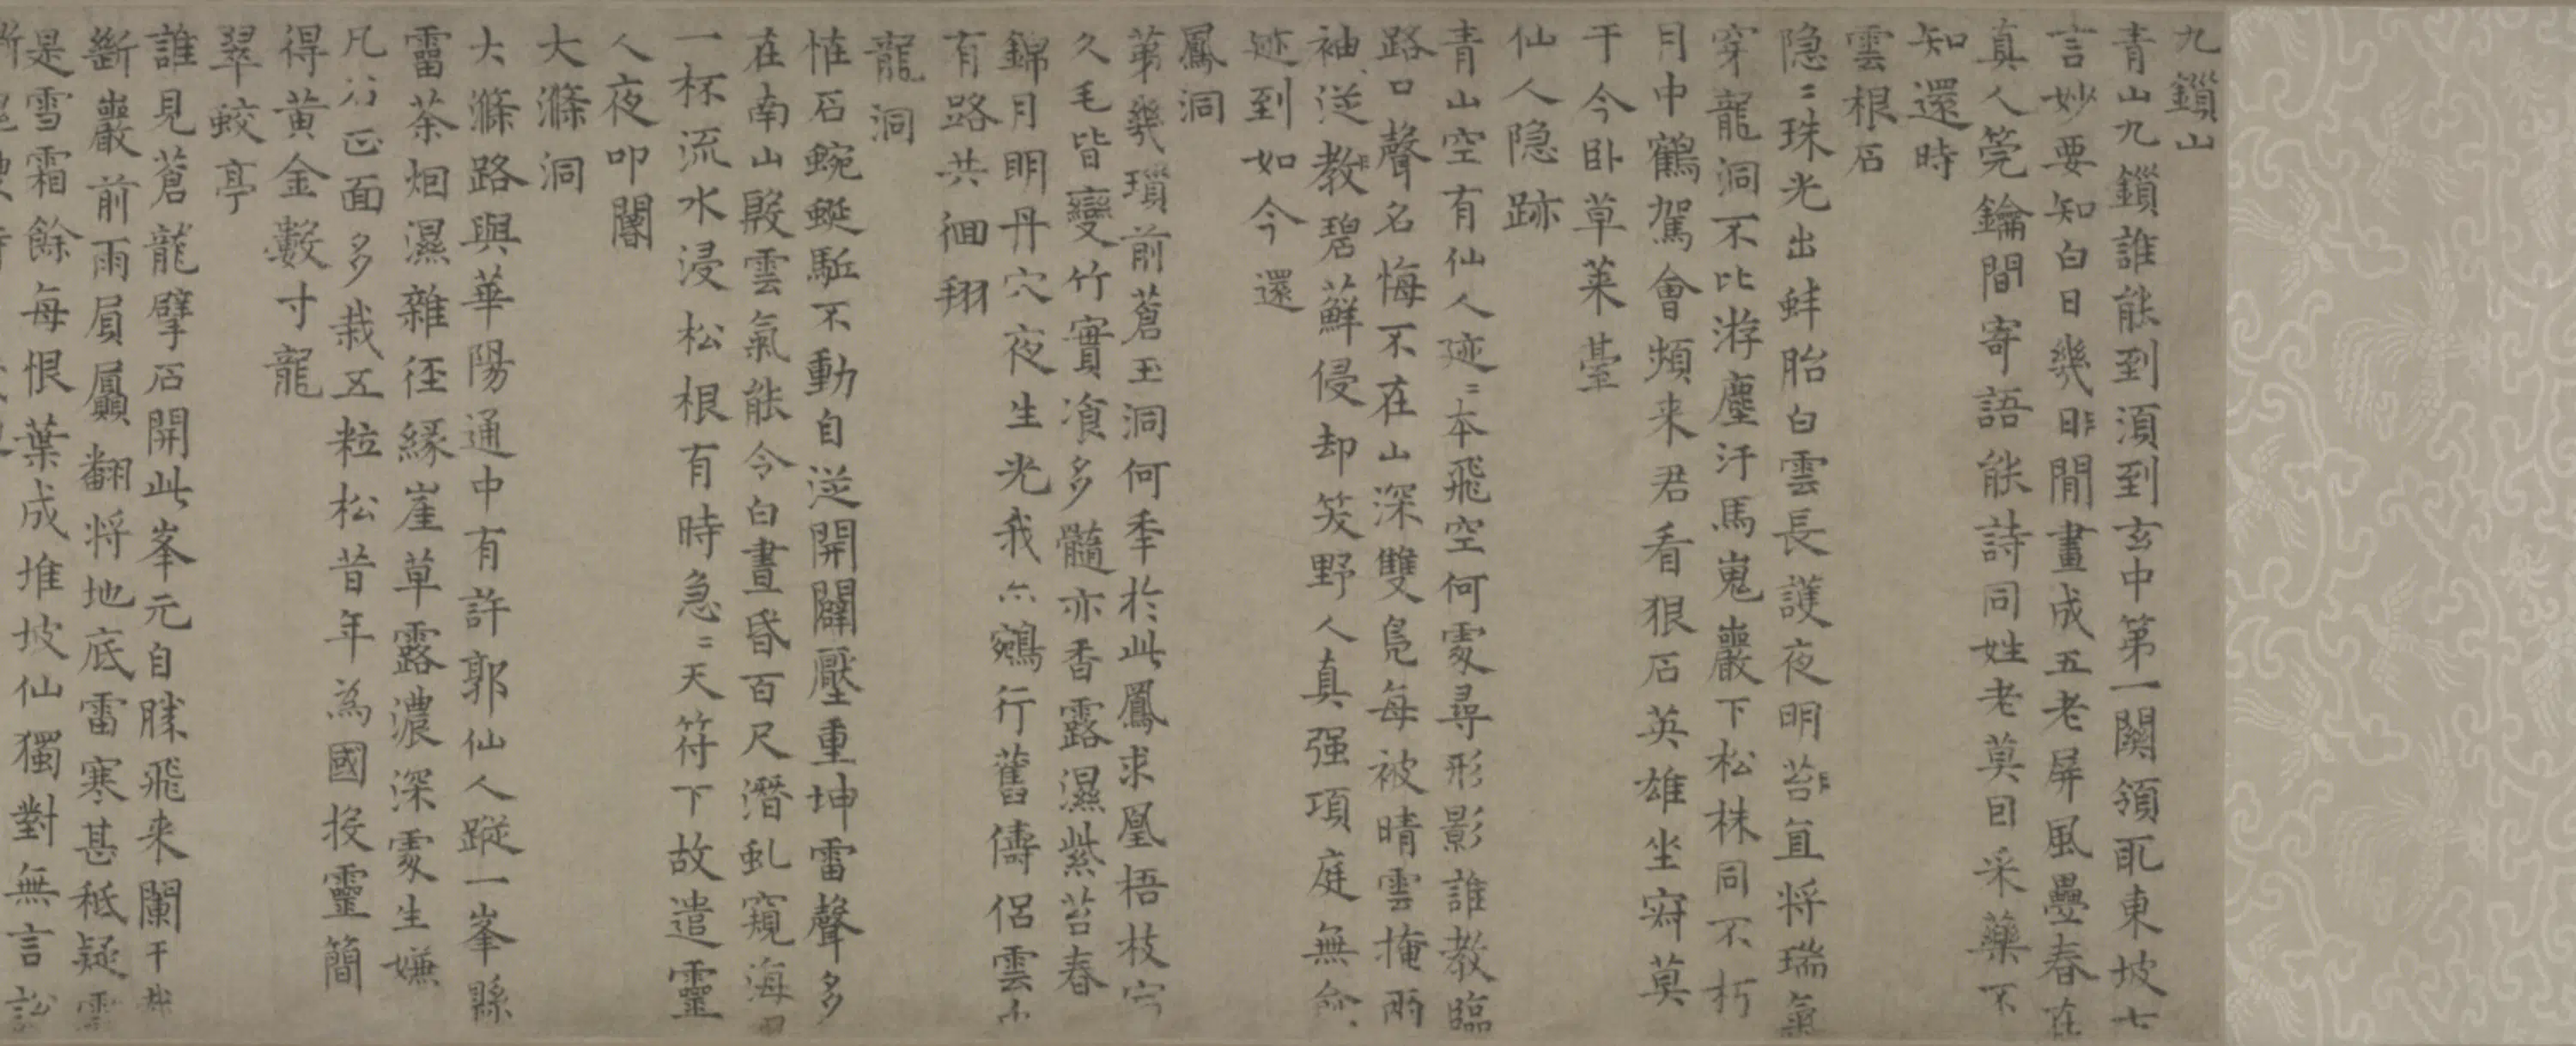 九鎖山
青山九鎖誰能到須到玄中第一關領取東坡七
言妙要知白日幾時閒畫成五老屏風疊春在
真人筦鑰間寄語能詩同姓老莫因采藥不
知還時
雲根石
隐〻珠光出蚌胎白雲長護夜明苔直将瑞氣
穿龍洞不比游塵汙馬嵬巖下松株同不朽
月中鶴駕會頻来君看狠石英雄坐寂莫
于今卧草萊臺
仙人隐跡
青山空有仙人迹〻本飛空何處尋形影誰教臨
路口聲名悔不在山深雙鳧每被晴雲掩兩
袖從教碧蘚侵却笑野人真强項庭無
迹到如今還
鳳洞
第幾瑣前蒼玉洞何年於此鳳求凰梧枝
久毛皆變竹實飡多髓亦香露濕紫苔春
錦月明丹穴夜生光我亦鵷行舊儔侣雲
有路共徊翔
龍洞
怪石蜿蜒駈不動自從開闢壓重坤雷聲多
在南山殷雲氣能令白晝昏百尺潛虬窺海
一杯流水浸松根有時急〻天符下故遣靈
人夜叩闇
大滌洞
大滌路與華陽通中有許郭仙人蹤一峯縣
雷茶烟濕雜徑緣崖草露濃深處生嫌
凡 面多栽五粒松昔年為國投靈簡
得黄金數寸龍
翠蛟亭
誰見蒼龍擘石開此峯元自勝飛来闌干
斷巖前雨屓贔翻将地底雷寒甚秪疑雪
是雪霜餘每恨葉成堆坡仙獨對無言説